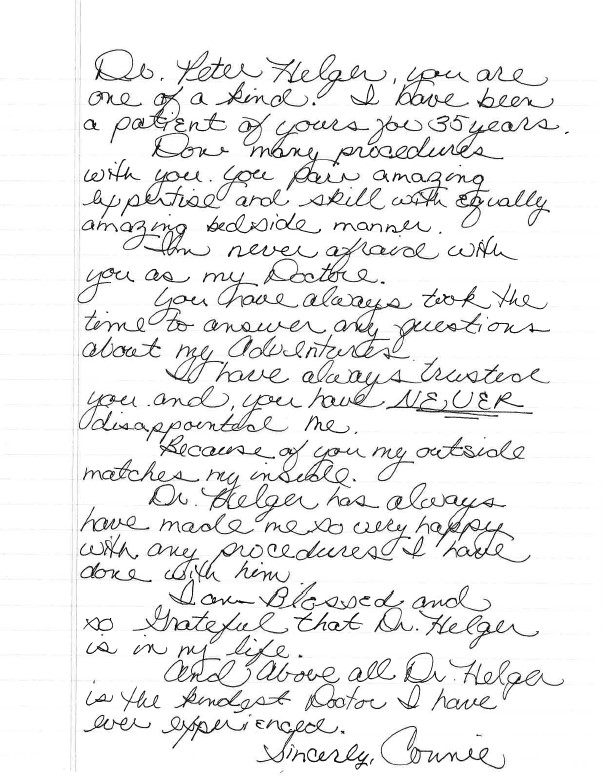 Dr. Peter Helger, you are
one of a kind. I have been
a patient of yours for 35 years.
Done many procedures
with you. you pair amazing
expertise and skill with equally
amazing bedside manner.
I'm never afraid with
you as my Doctore.
you have always took the
time to answer any questions
about my Adventures.
I have always trusted
you and, you have NEVER
disappointed me.
Because of you my outside
matches my inside.
Dr. Helger has always
have made me so very happy
with any procedures I have
done with him
I am Blessed and
so Grateful that Dr. Helger
is in my life.
And Above all Dr. Helger
is the kindest Doctor I have
ever experienced.
Sincerly, Connie